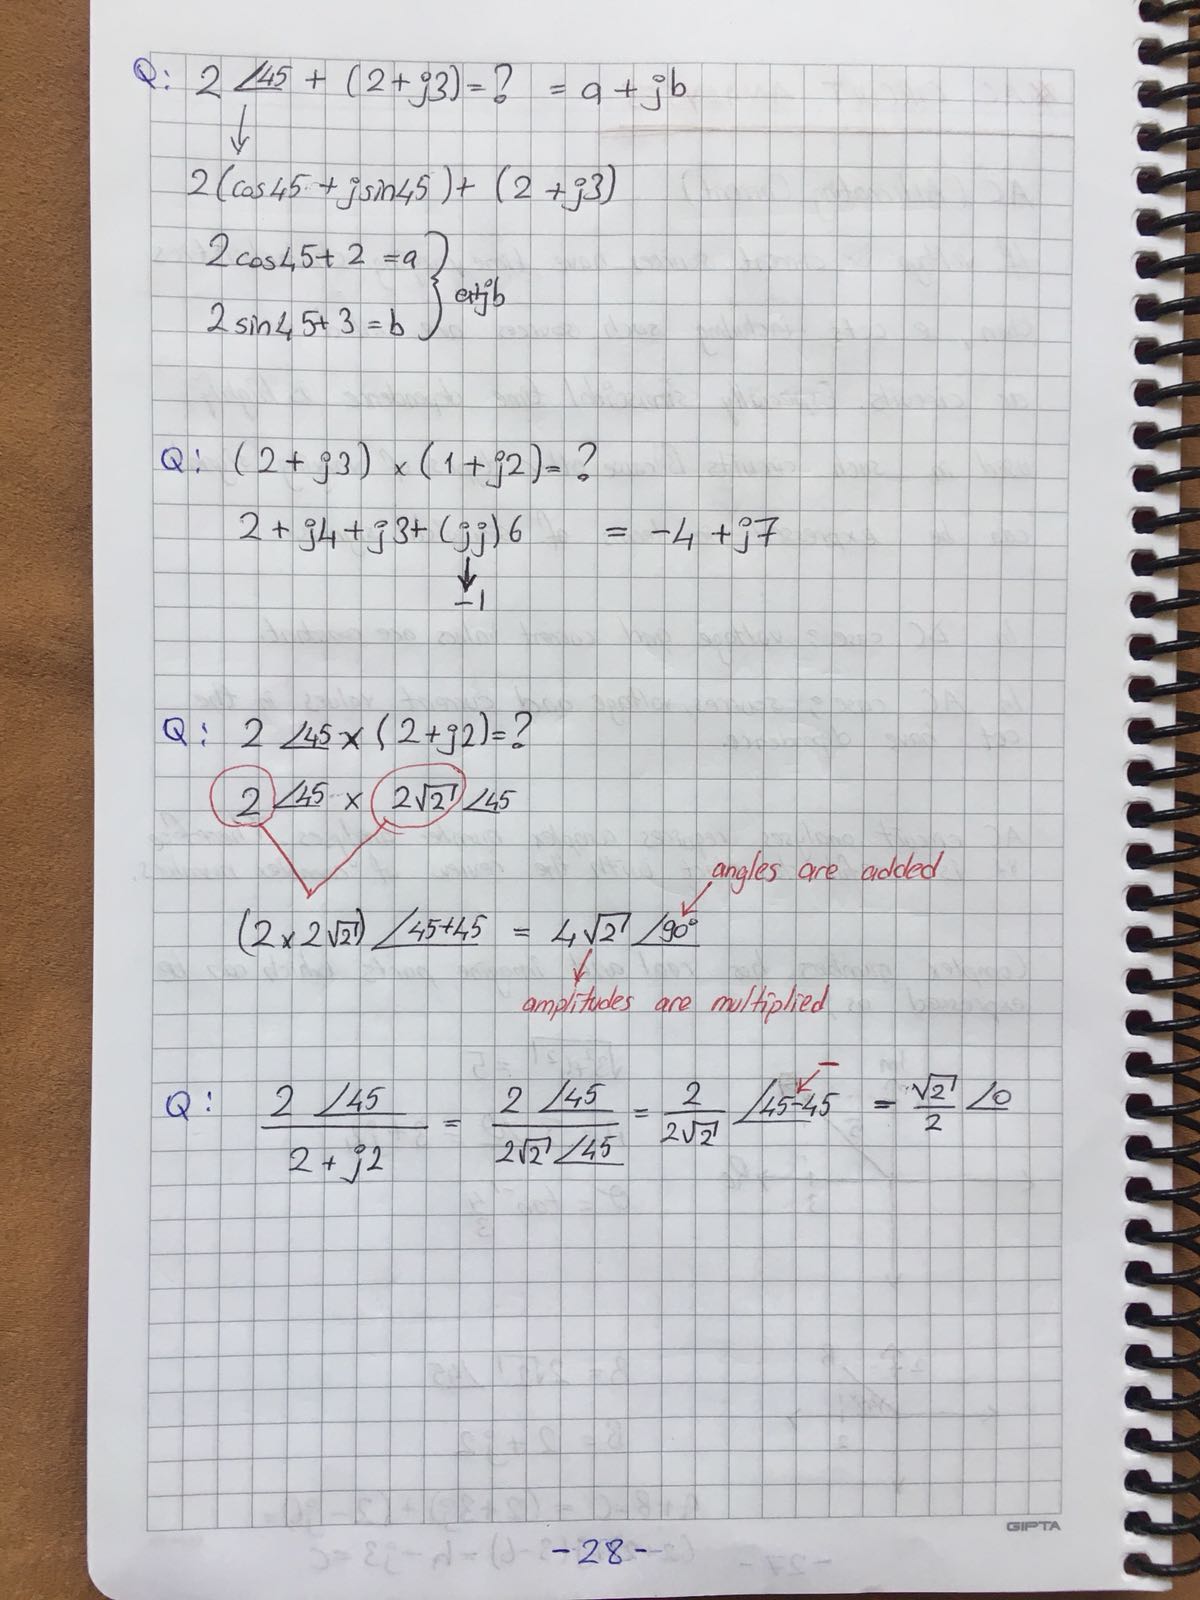 Q: 2 ∠45 + (2+j3)=? = a+jb
2(cos45+jsin45)+ (2+j3)
2cos45+2 =a
a+jb
2sin45+3 =b
Q: (2+j3) x (1+j2)=?
2+j4+j3+(jj)6 = -4+j7
-1
Q: 2 ∠45 x (2+j2)=?
2 ∠45 x 2√2 ∠45
angles are added
(2x2√2) ∠45+45 = 4√2 ∠90°
amplitudes are multiplied
-
Q: 2 ∠45 / 2+j2 = 2 ∠45 / 2√2 ∠45 = 2/2√2 ∠45-45 = √2/2 ∠0
GIPTA
-28-